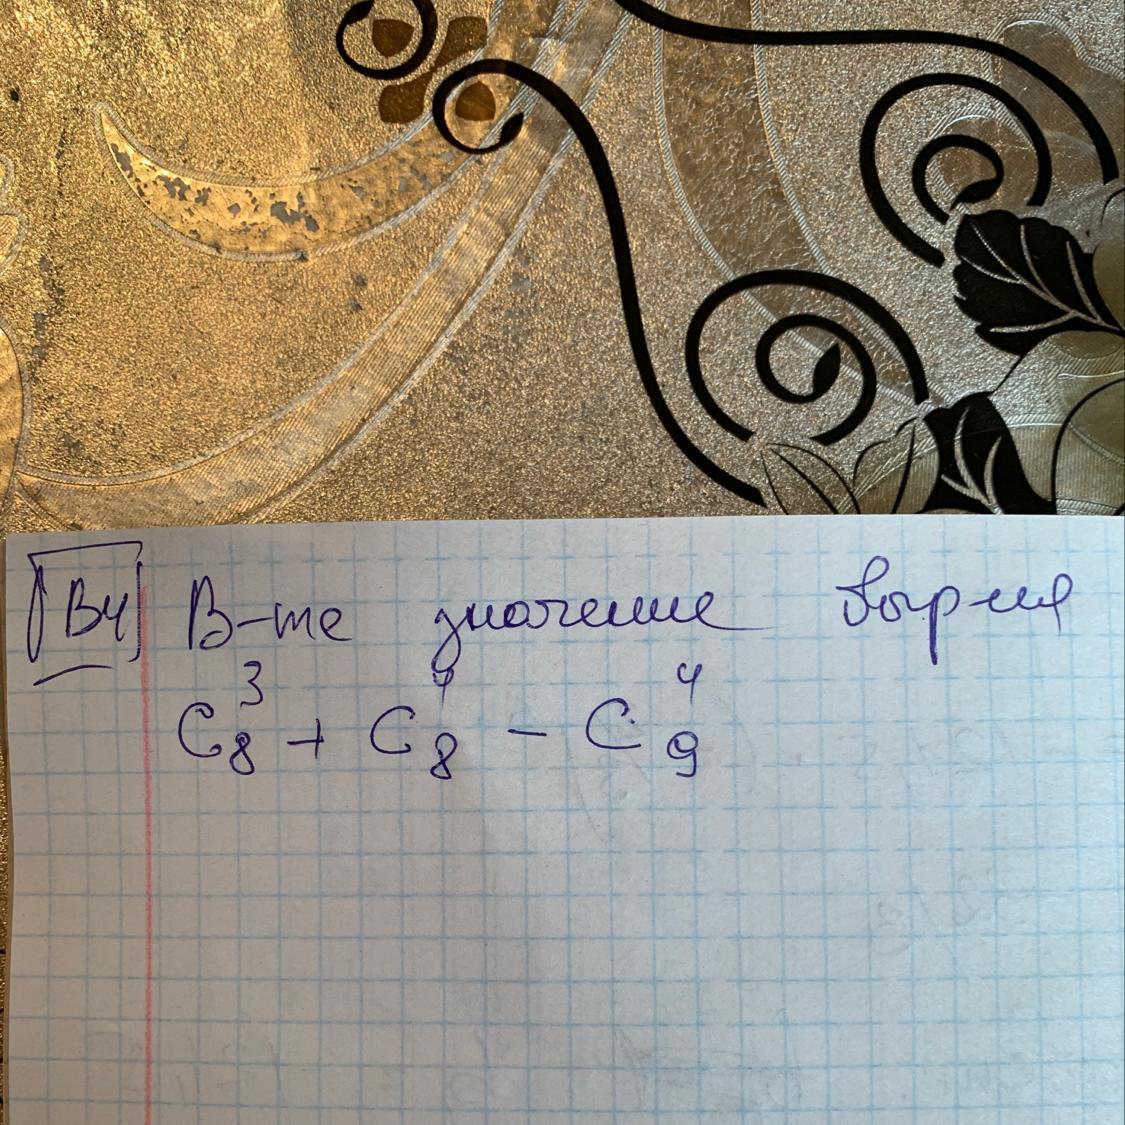 В4 В-те значение выр-ия
C₈³ + C₈⁴ - C₉⁴